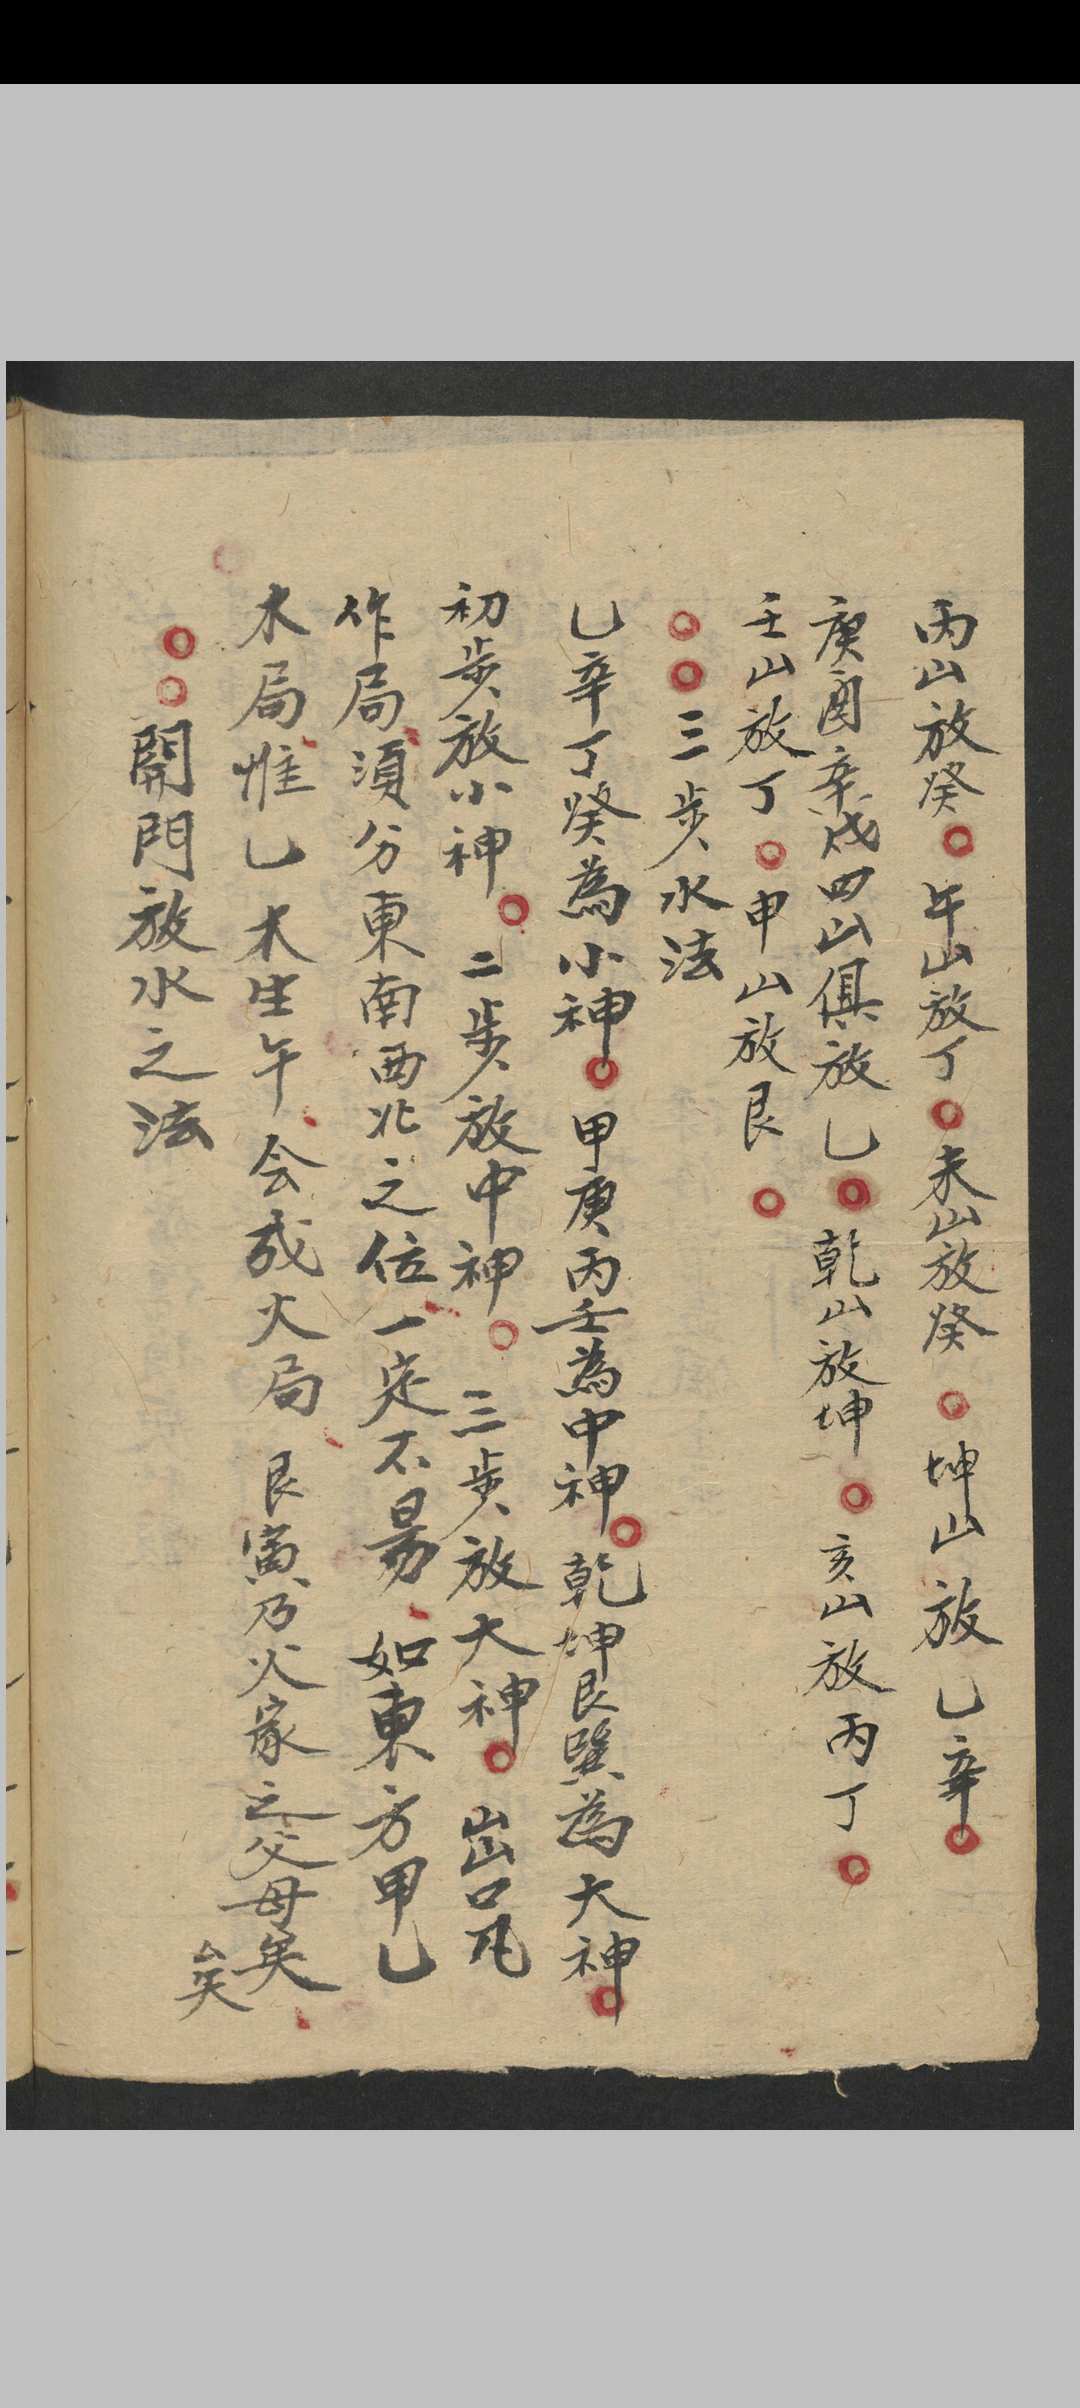 丙山放癸 午山放丁 未山放癸 坤山放乙辛
庚酉辛戌四山俱放乙 乾山放坤 亥山放丙丁
壬山放丁 申山放艮
三步水法
乙辛丁癸為小神 甲庚丙壬為中神 乾坤艮巽為大神
初步放小神 二步放中神 三步放大神 出口凡
作局須分東南西北之位一定不易 如東方甲乙
木局惟乙木生午 会成火局 艮寅乃火家之父母矣
矣
開門放水之法